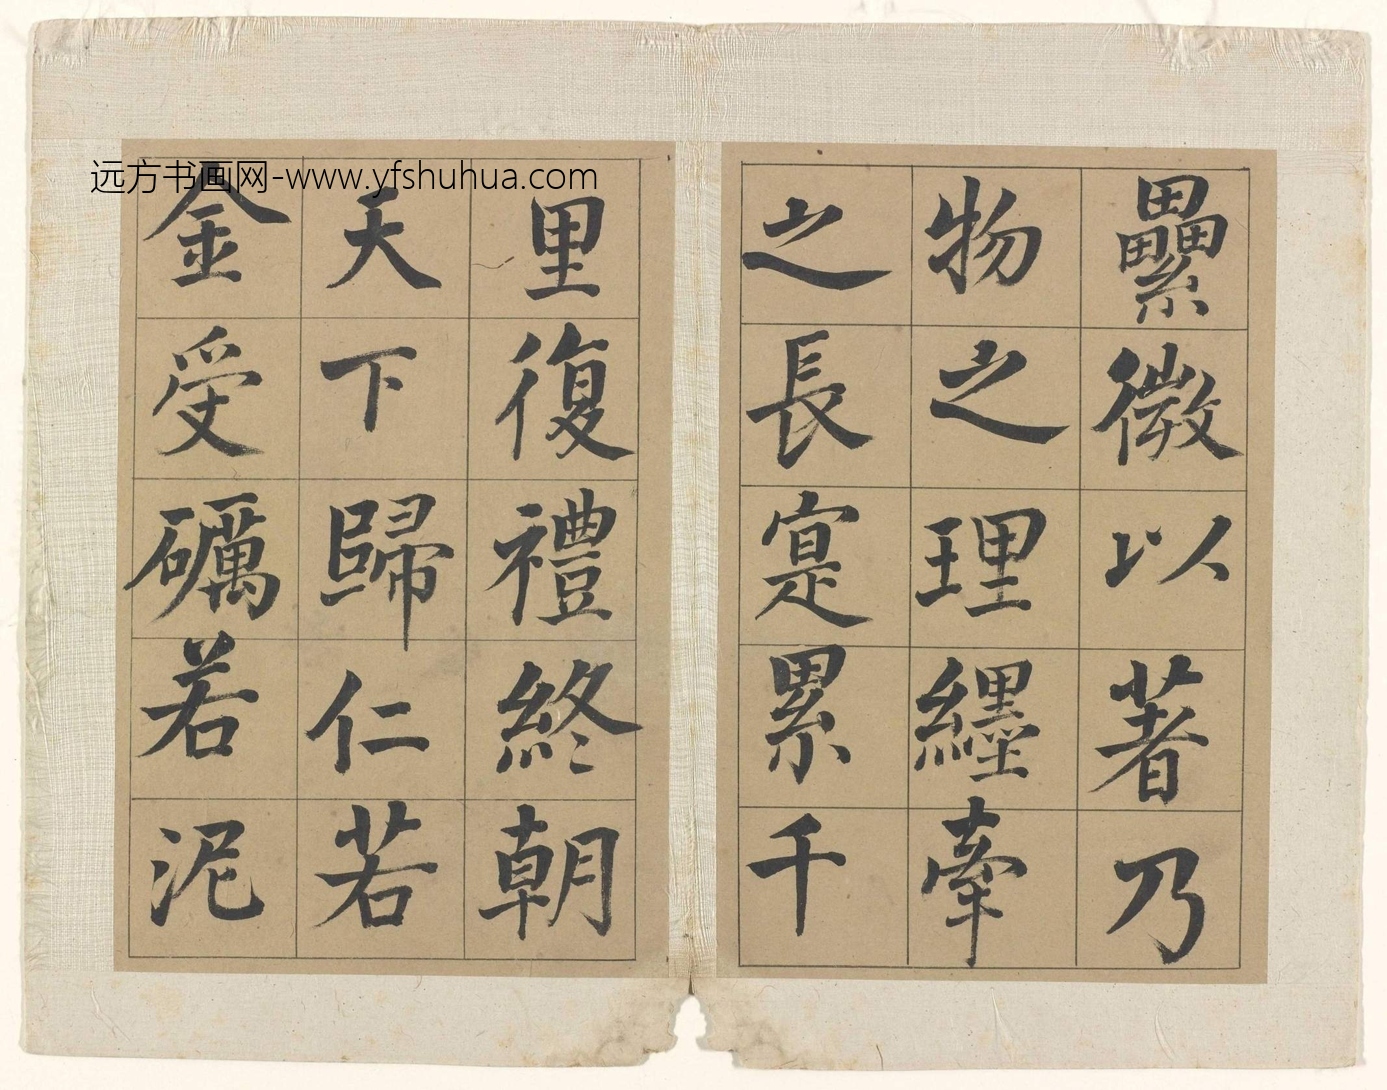 远方书画网-www.yfshuhua.com
纍微以著乃
物之理纆牽
之長寔累千
里復禮終朝
天下歸仁若
金受礪若泥